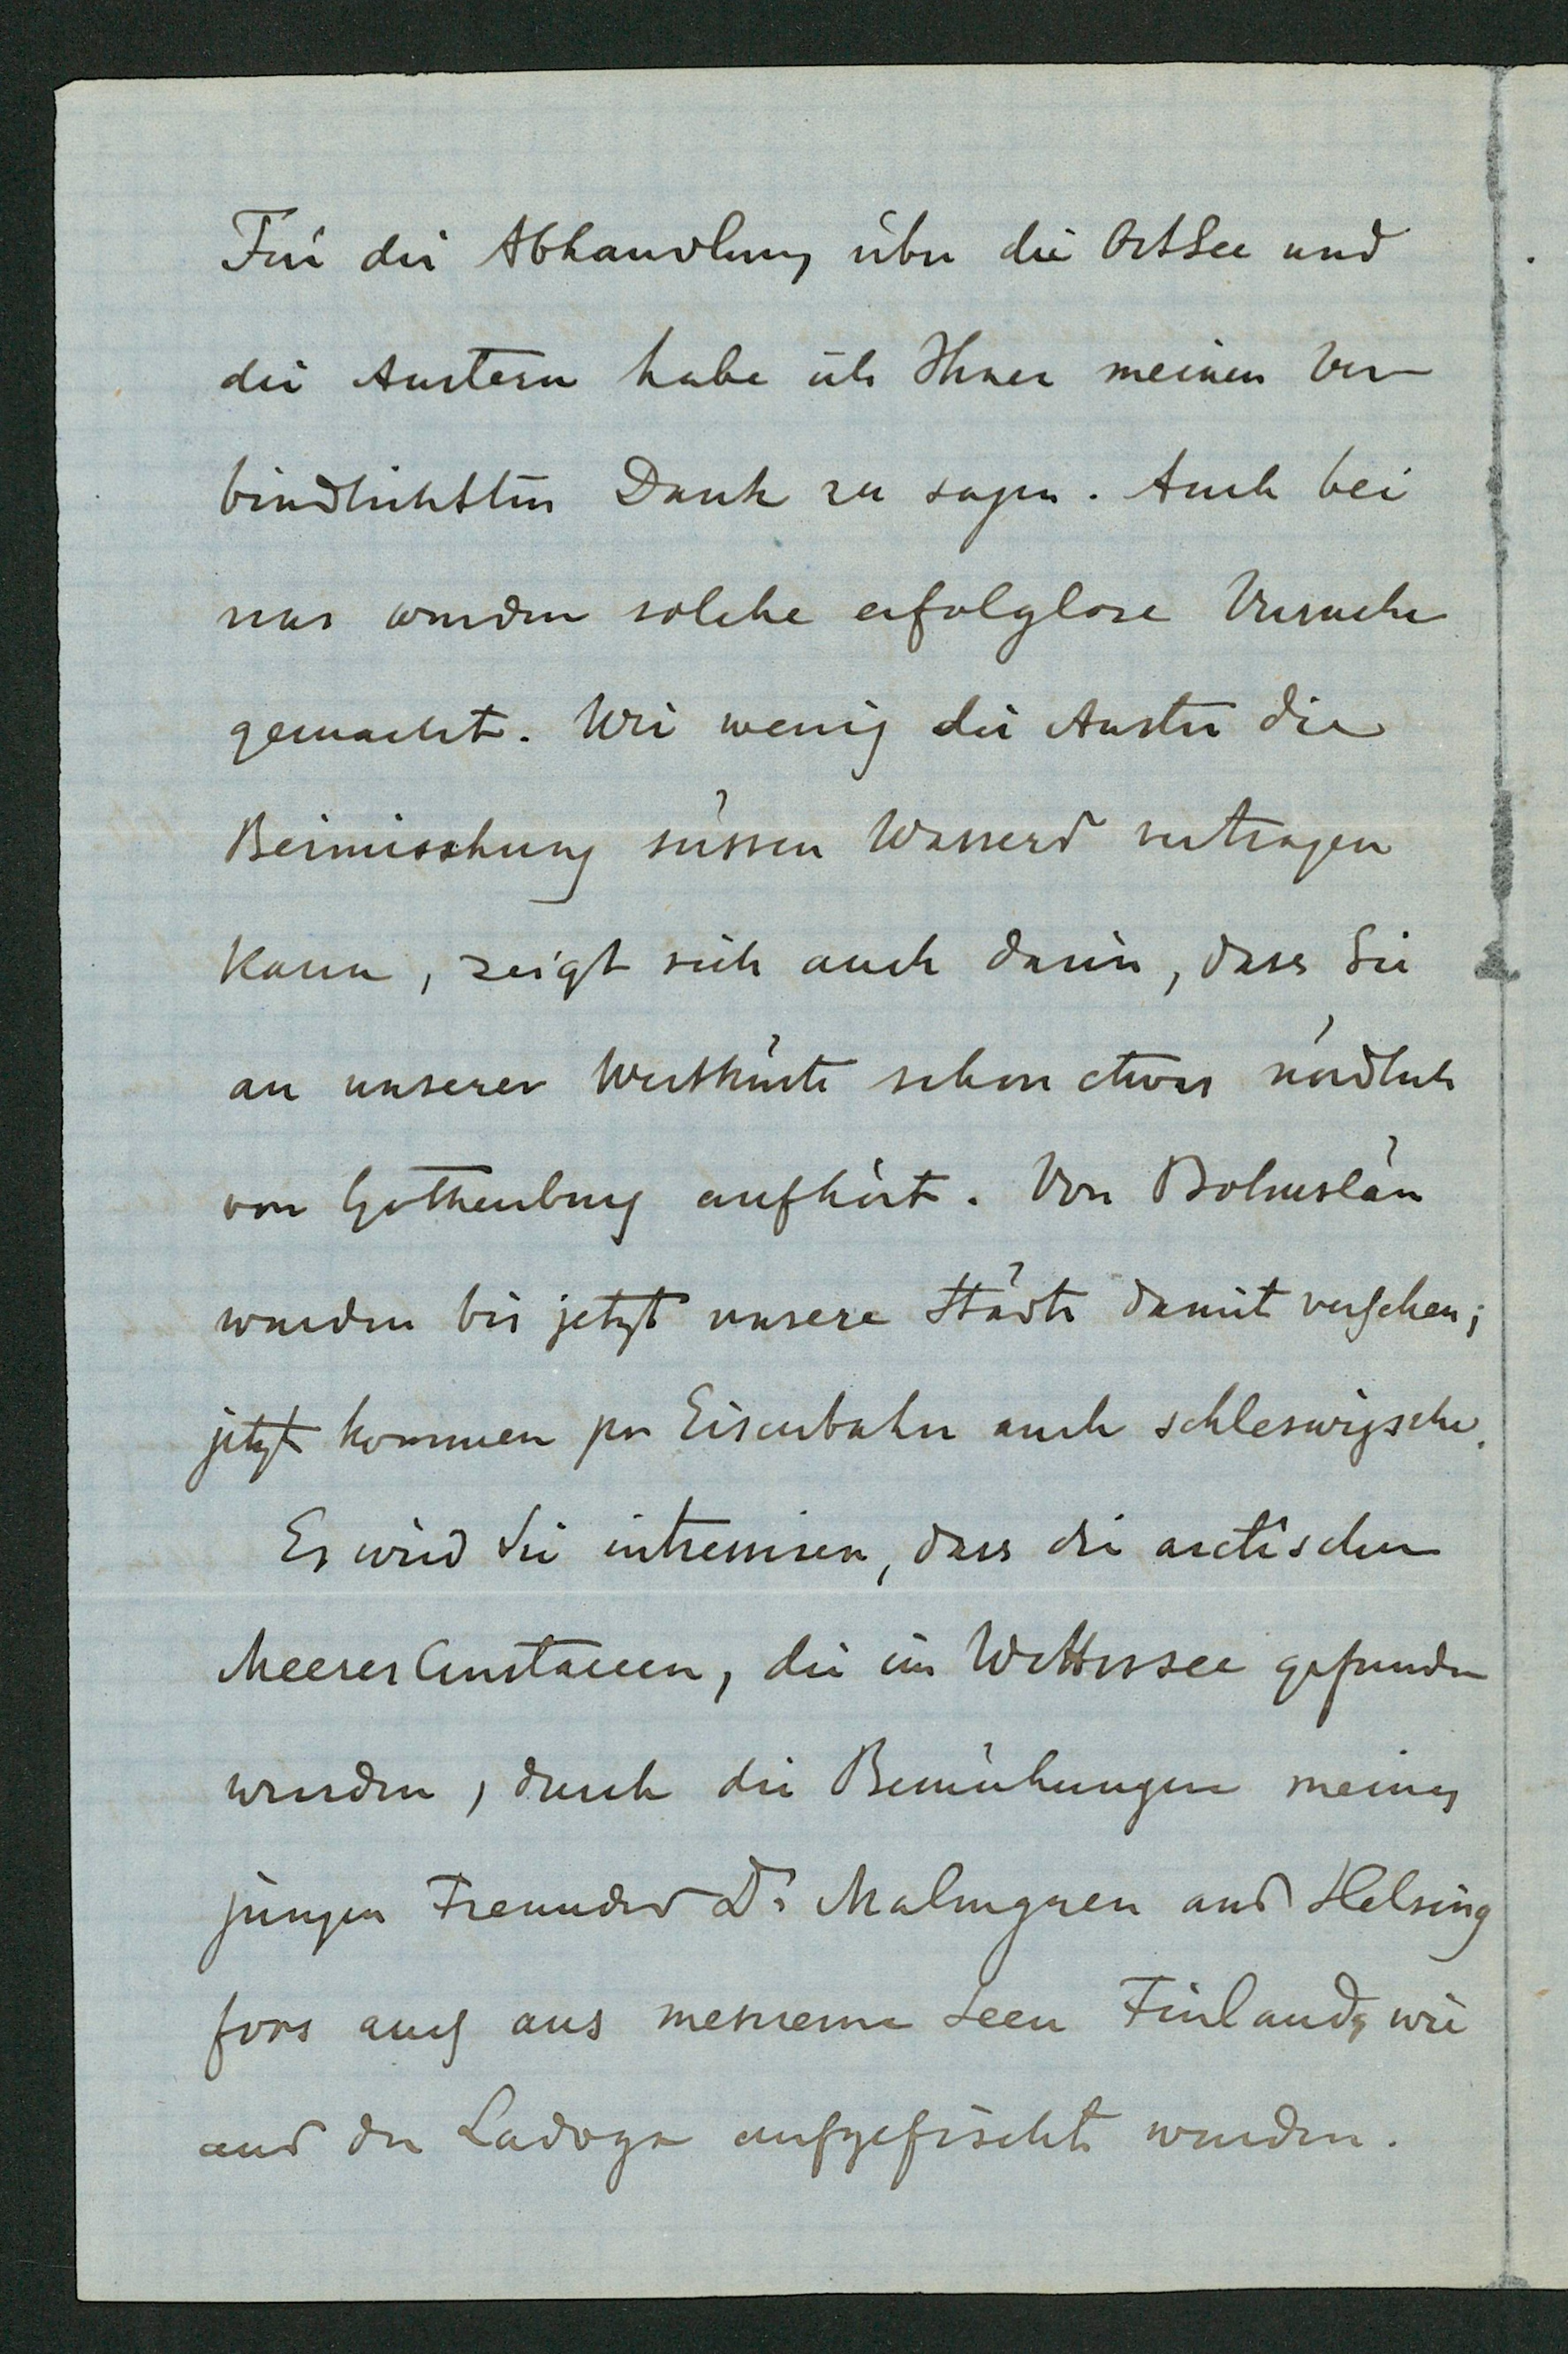 Für die Abhandlung über die Ostsee und
die Austern habe ich Ihnen meinen ver
bindlichsten Dank zu sagen. Auch bei
uns wurden solche erfolglose Versuche
gemacht. Wie wenig die Auster die
Beimischung süssen Wassers vertragen
kann, zeigt sich auch darin, dass Sie
an unserer Westküste schon etwas nördlich
von Gothenburg aufhört. Von Bohuslän
wurden bis jetzt unsere Städte damit versehen;
jetzt kommen per Eisenbahn auch schleswigsche.
Es wird Sie interessiren, dass die arctischen
Meerescrustaceen, die im Wettersee gefunden
wurden, durch die Bemühungen meines
jungen Freundes Dr Malmgren aus Helsing
fors auch aus mehreren Seen Finlands, wie
aus der Ladoga aufgefischt wurden.